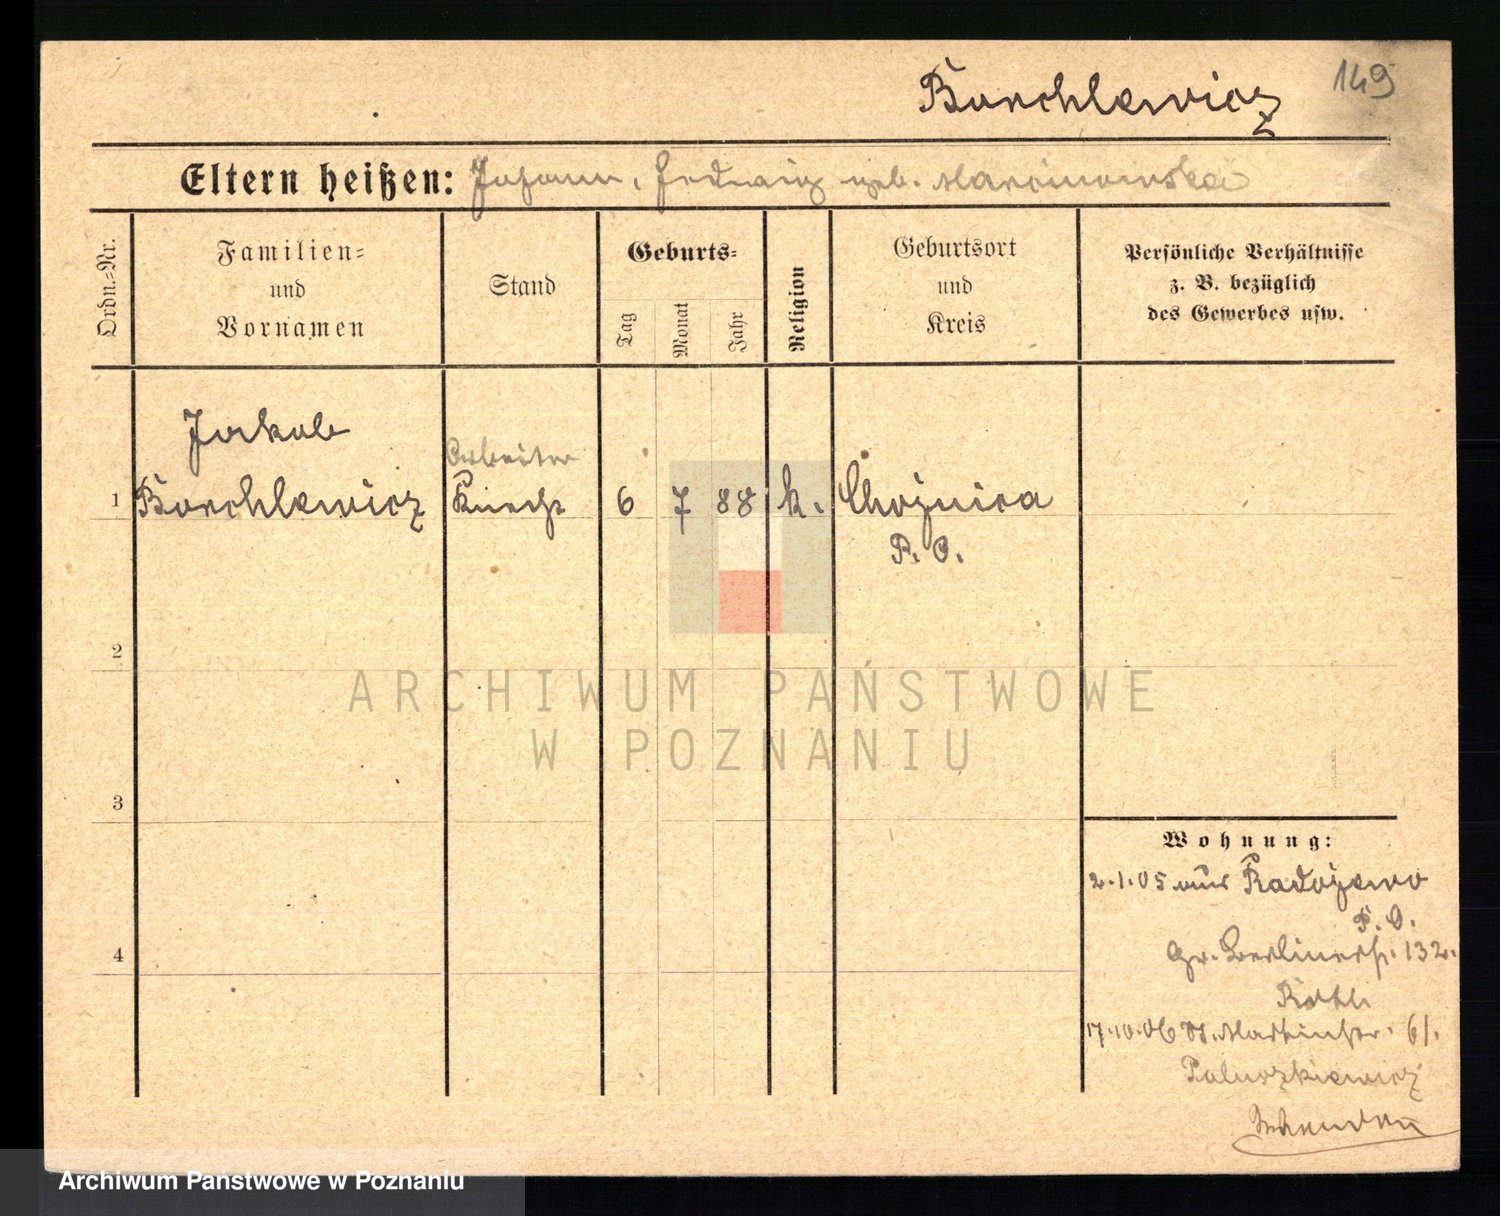 149
Borchlewicz
Eltern heißen: Johann, Hedwig geb. Marcinowska
Ordn.-Nr.
Familien- und Vornamen
Stand
Geburts-
Tag
Monat
Jahr
Religion
Geburtsort und Kreis
Persönliche Verhältnisse z. B. bezüglich des Gewerbes usw.
Jakob
Arbeiter
1 Borchlewicz Knecht 6 7 88 k. Chojnica
P. O.
2
3
4
Wohnung:
2.1.05 aus Radojewo
P. O.
Gr. Berlinerstr. 132.
17.10.06 St. Martinstr. 61.
Paluszkiewicz
ARCHIWUM PAŃSTWOWE
W POZNANIU
Archiwum Państwowe w Poznaniu